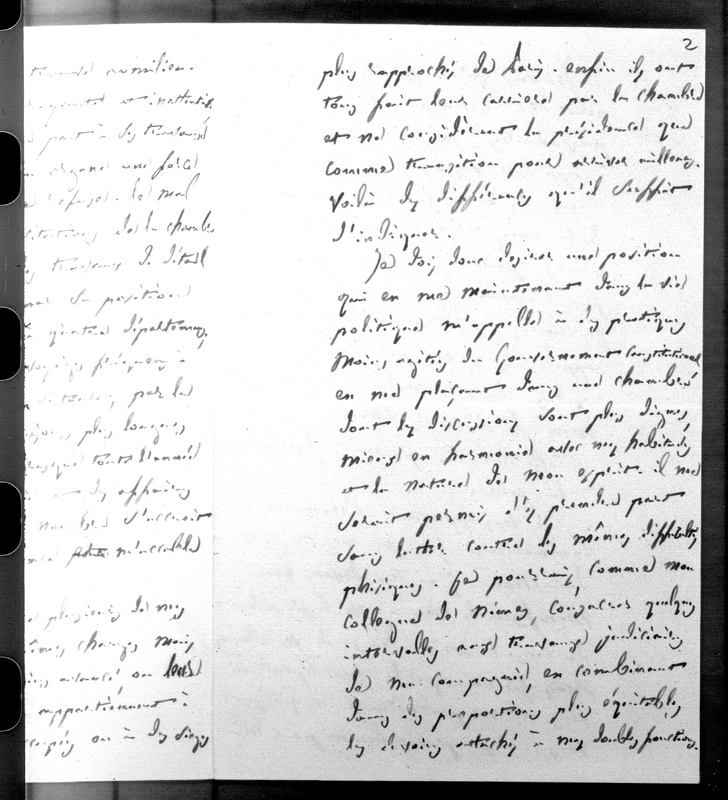 travaux au milieu
et inattentifs
part à des travaux
exigent une force
le mal
de la chambre
travaux de détail
sa position
quatre départemens,
fréquens à
par la
plus longues
presque toute l'année
des affaires
nombre s'accroit
m'accable
plusieurs de mes
mêmes charges mais
avancé ou leurs
appartiennent à
ou à des sièges
2
plus rapprochés de Paris. enfin ils ont
tous fait leur carrière par la chambre
et ne considèrent la présidence que
comme transition pour arriver ailleurs.
Voilà des différences qu'il suffit
d'indiquer.
Je dois donc désirer une position
qui en me maintenant dans la vie
politique m'appelle à des pratiques
moins agitées du Gouvernement Constitutionnel
en me plaçant dans une chambre
dont les discussions sont plus dignes,
mieux en harmonie avec mes habitudes
et la nature de mon esprit. il me
serait permis d'y prendre part
sans lutter contre les mêmes difficultés
phisiques. Je pourrais, comme mon
collegue de Nimes, consacrer quelques
intervalles aux travaux judiciaires
de ma compagnie, en combinant
dans des proportions plus équitables
les devoirs attachés à mes doubles fonctions.